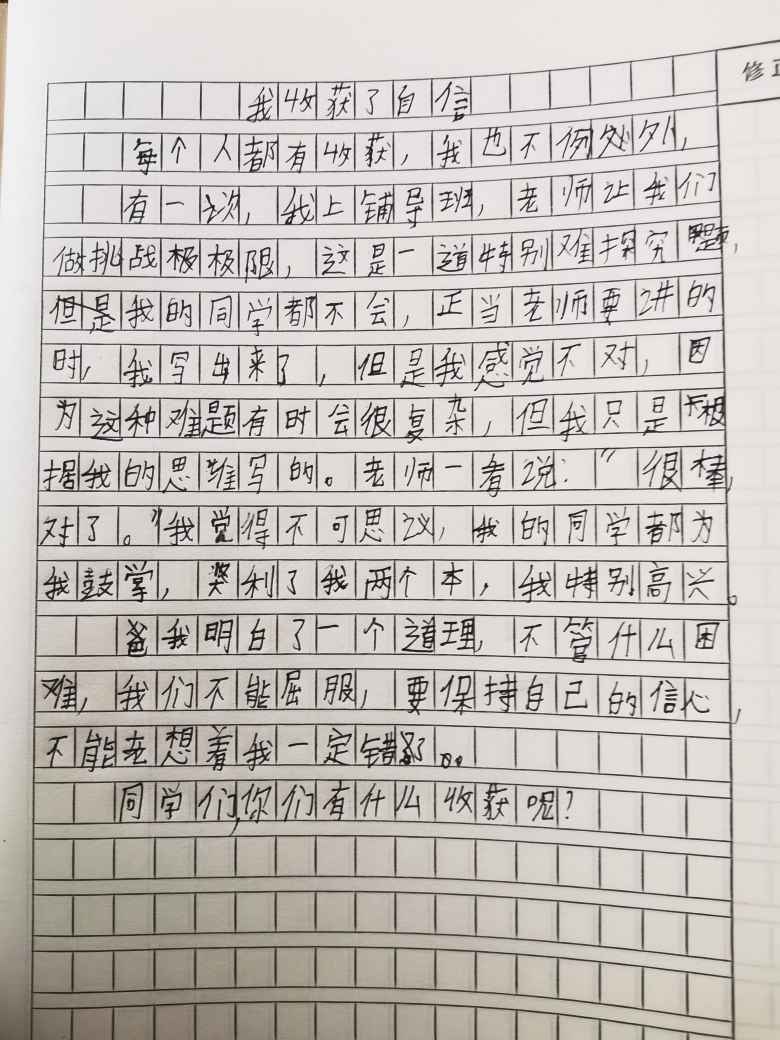 修正
我收获了自信
每个人都有收获，我也不例外，
有一次，我上铺导班，老师让我们
做挑战极极限，这是一道特别难探究题，
但是我的同学都不会，正当老师要讲的
时，我写出来了，但是我感觉不对，因
为这种难题有时会很复杂，但我只是根
据我的思维写的。老师一看说：“很棒，
对了。”我觉得不可思议，我的同学都为
我鼓掌，奖利了我两个本，我特别高兴。
我明白了一个道理，不管什么困
难，我们不能屈服，要保持自己的信心，
不能老想着我一定错。
同学们，你们有什么收获呢？